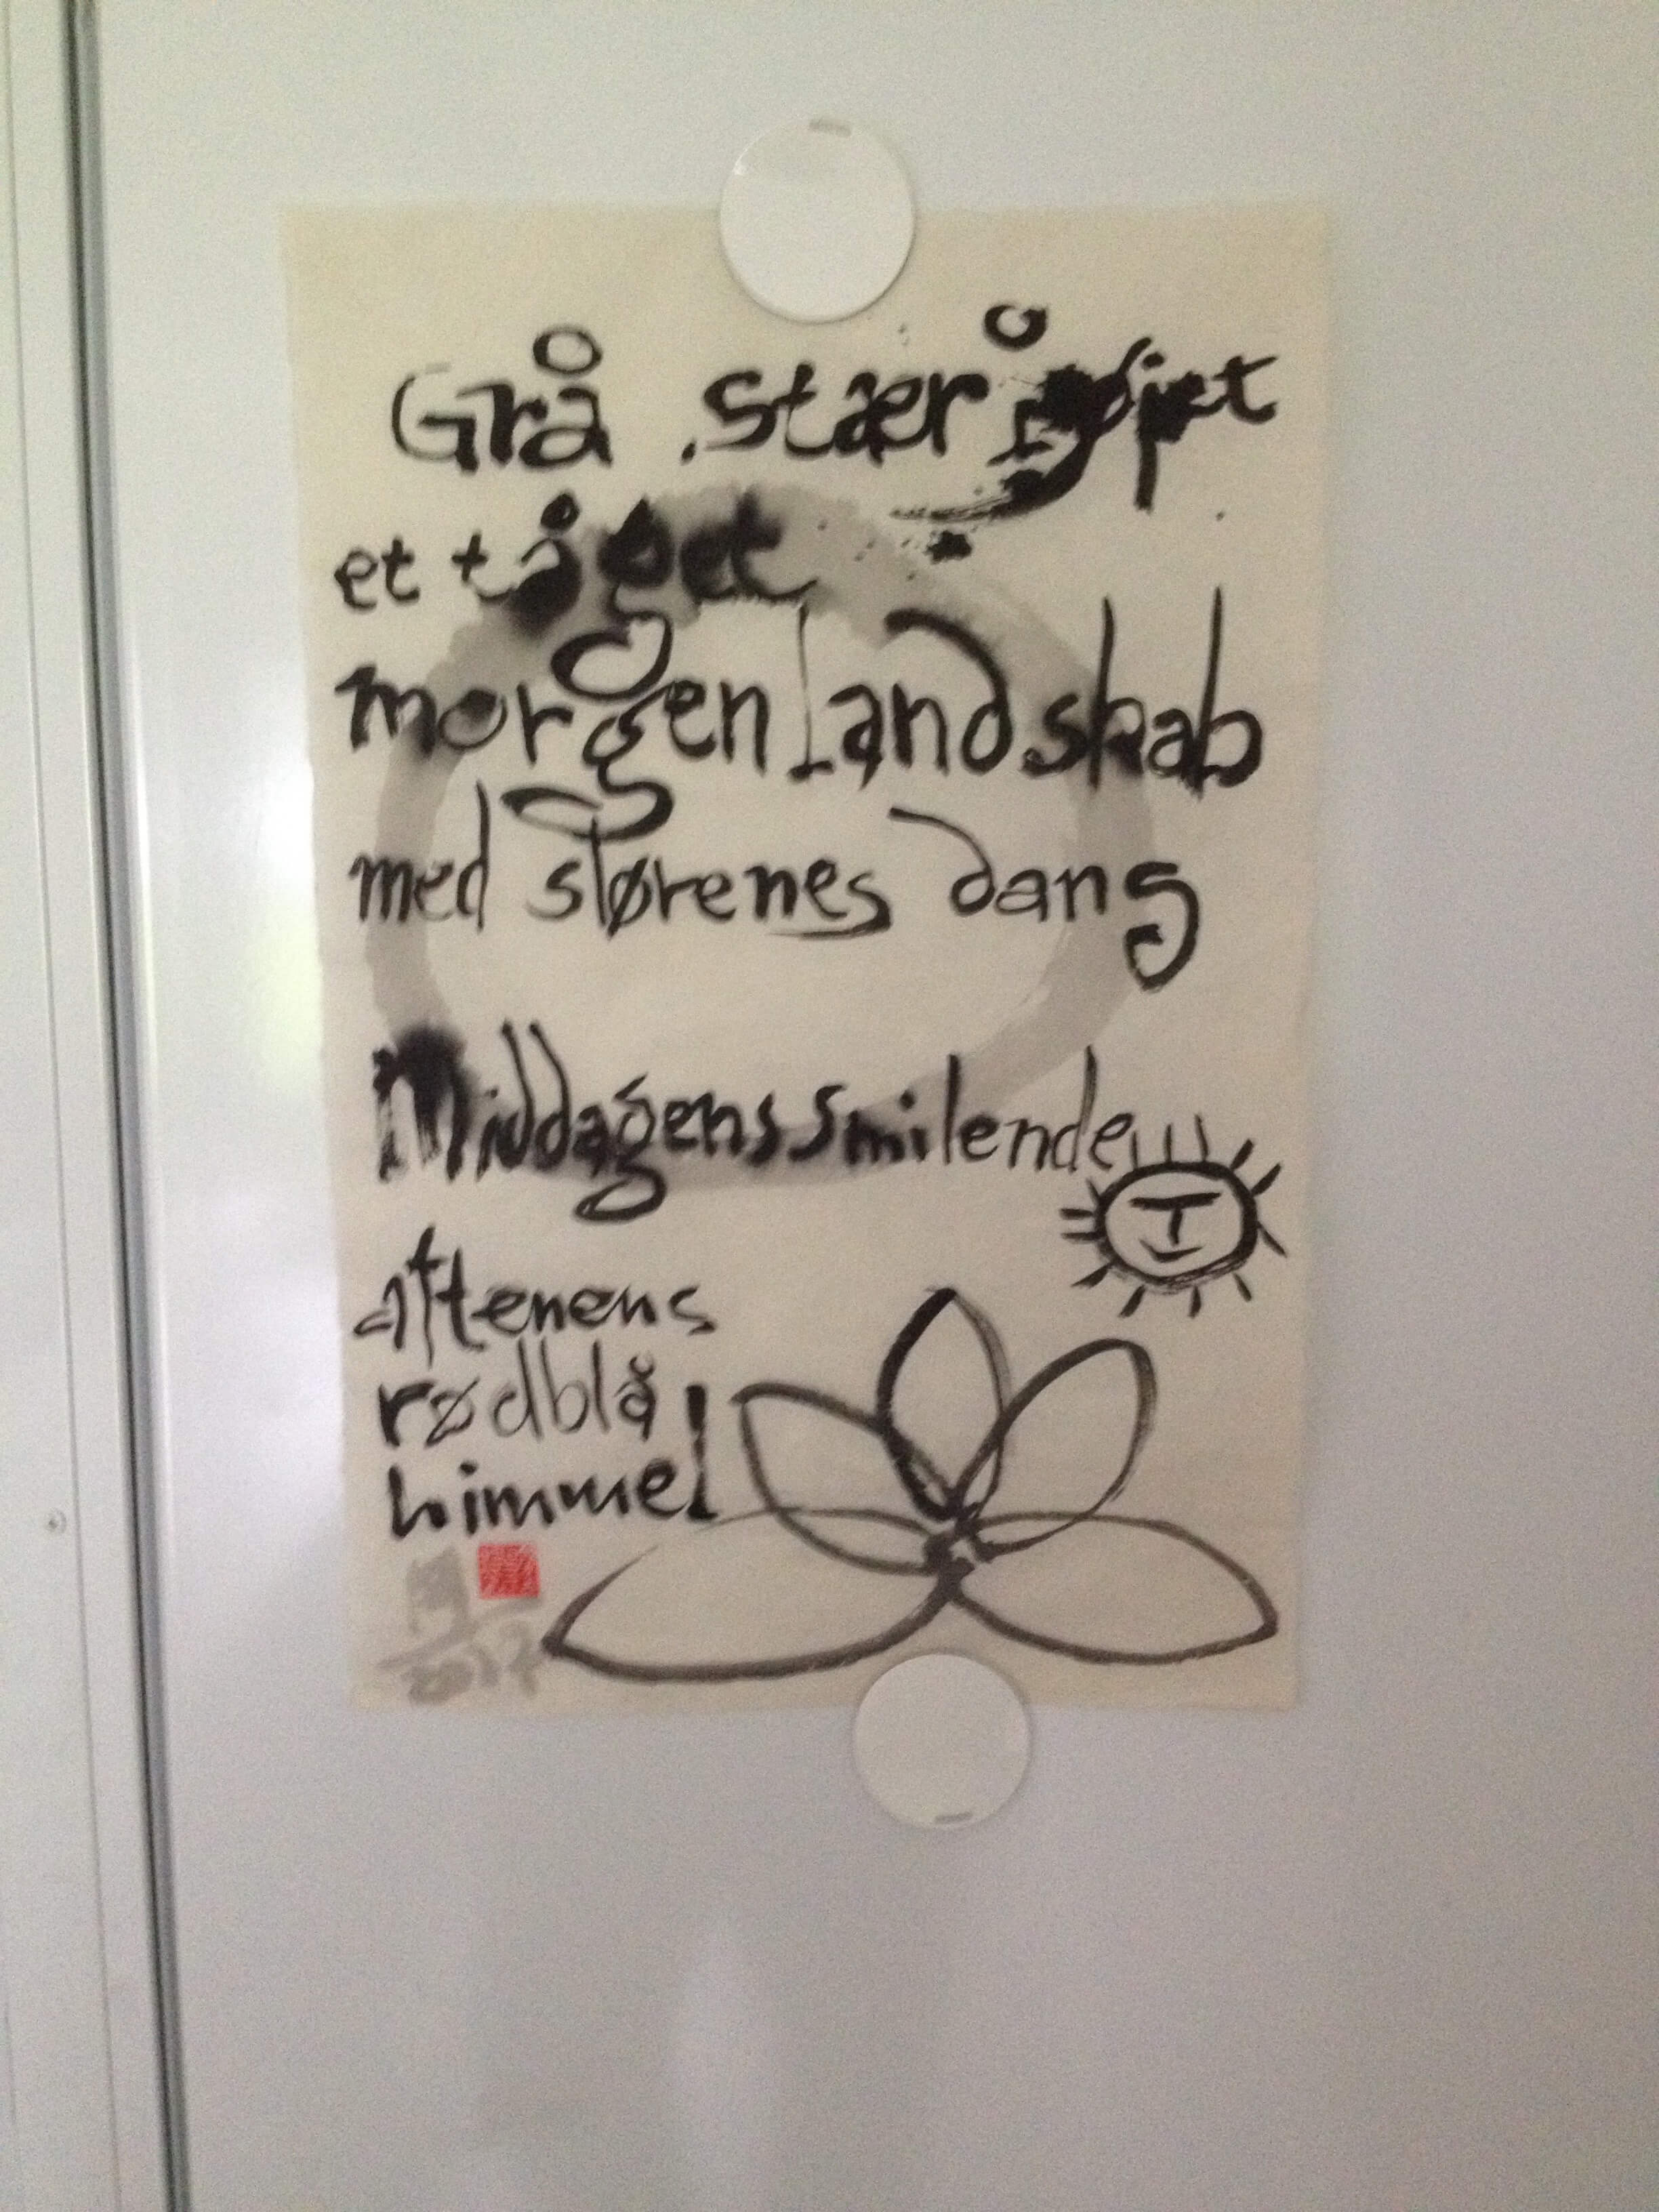 Grå stær på øjet
et tåget
morgenlandskab
med størenes dans
Middagens smilende
aftenens
rødblå
himmel
2017